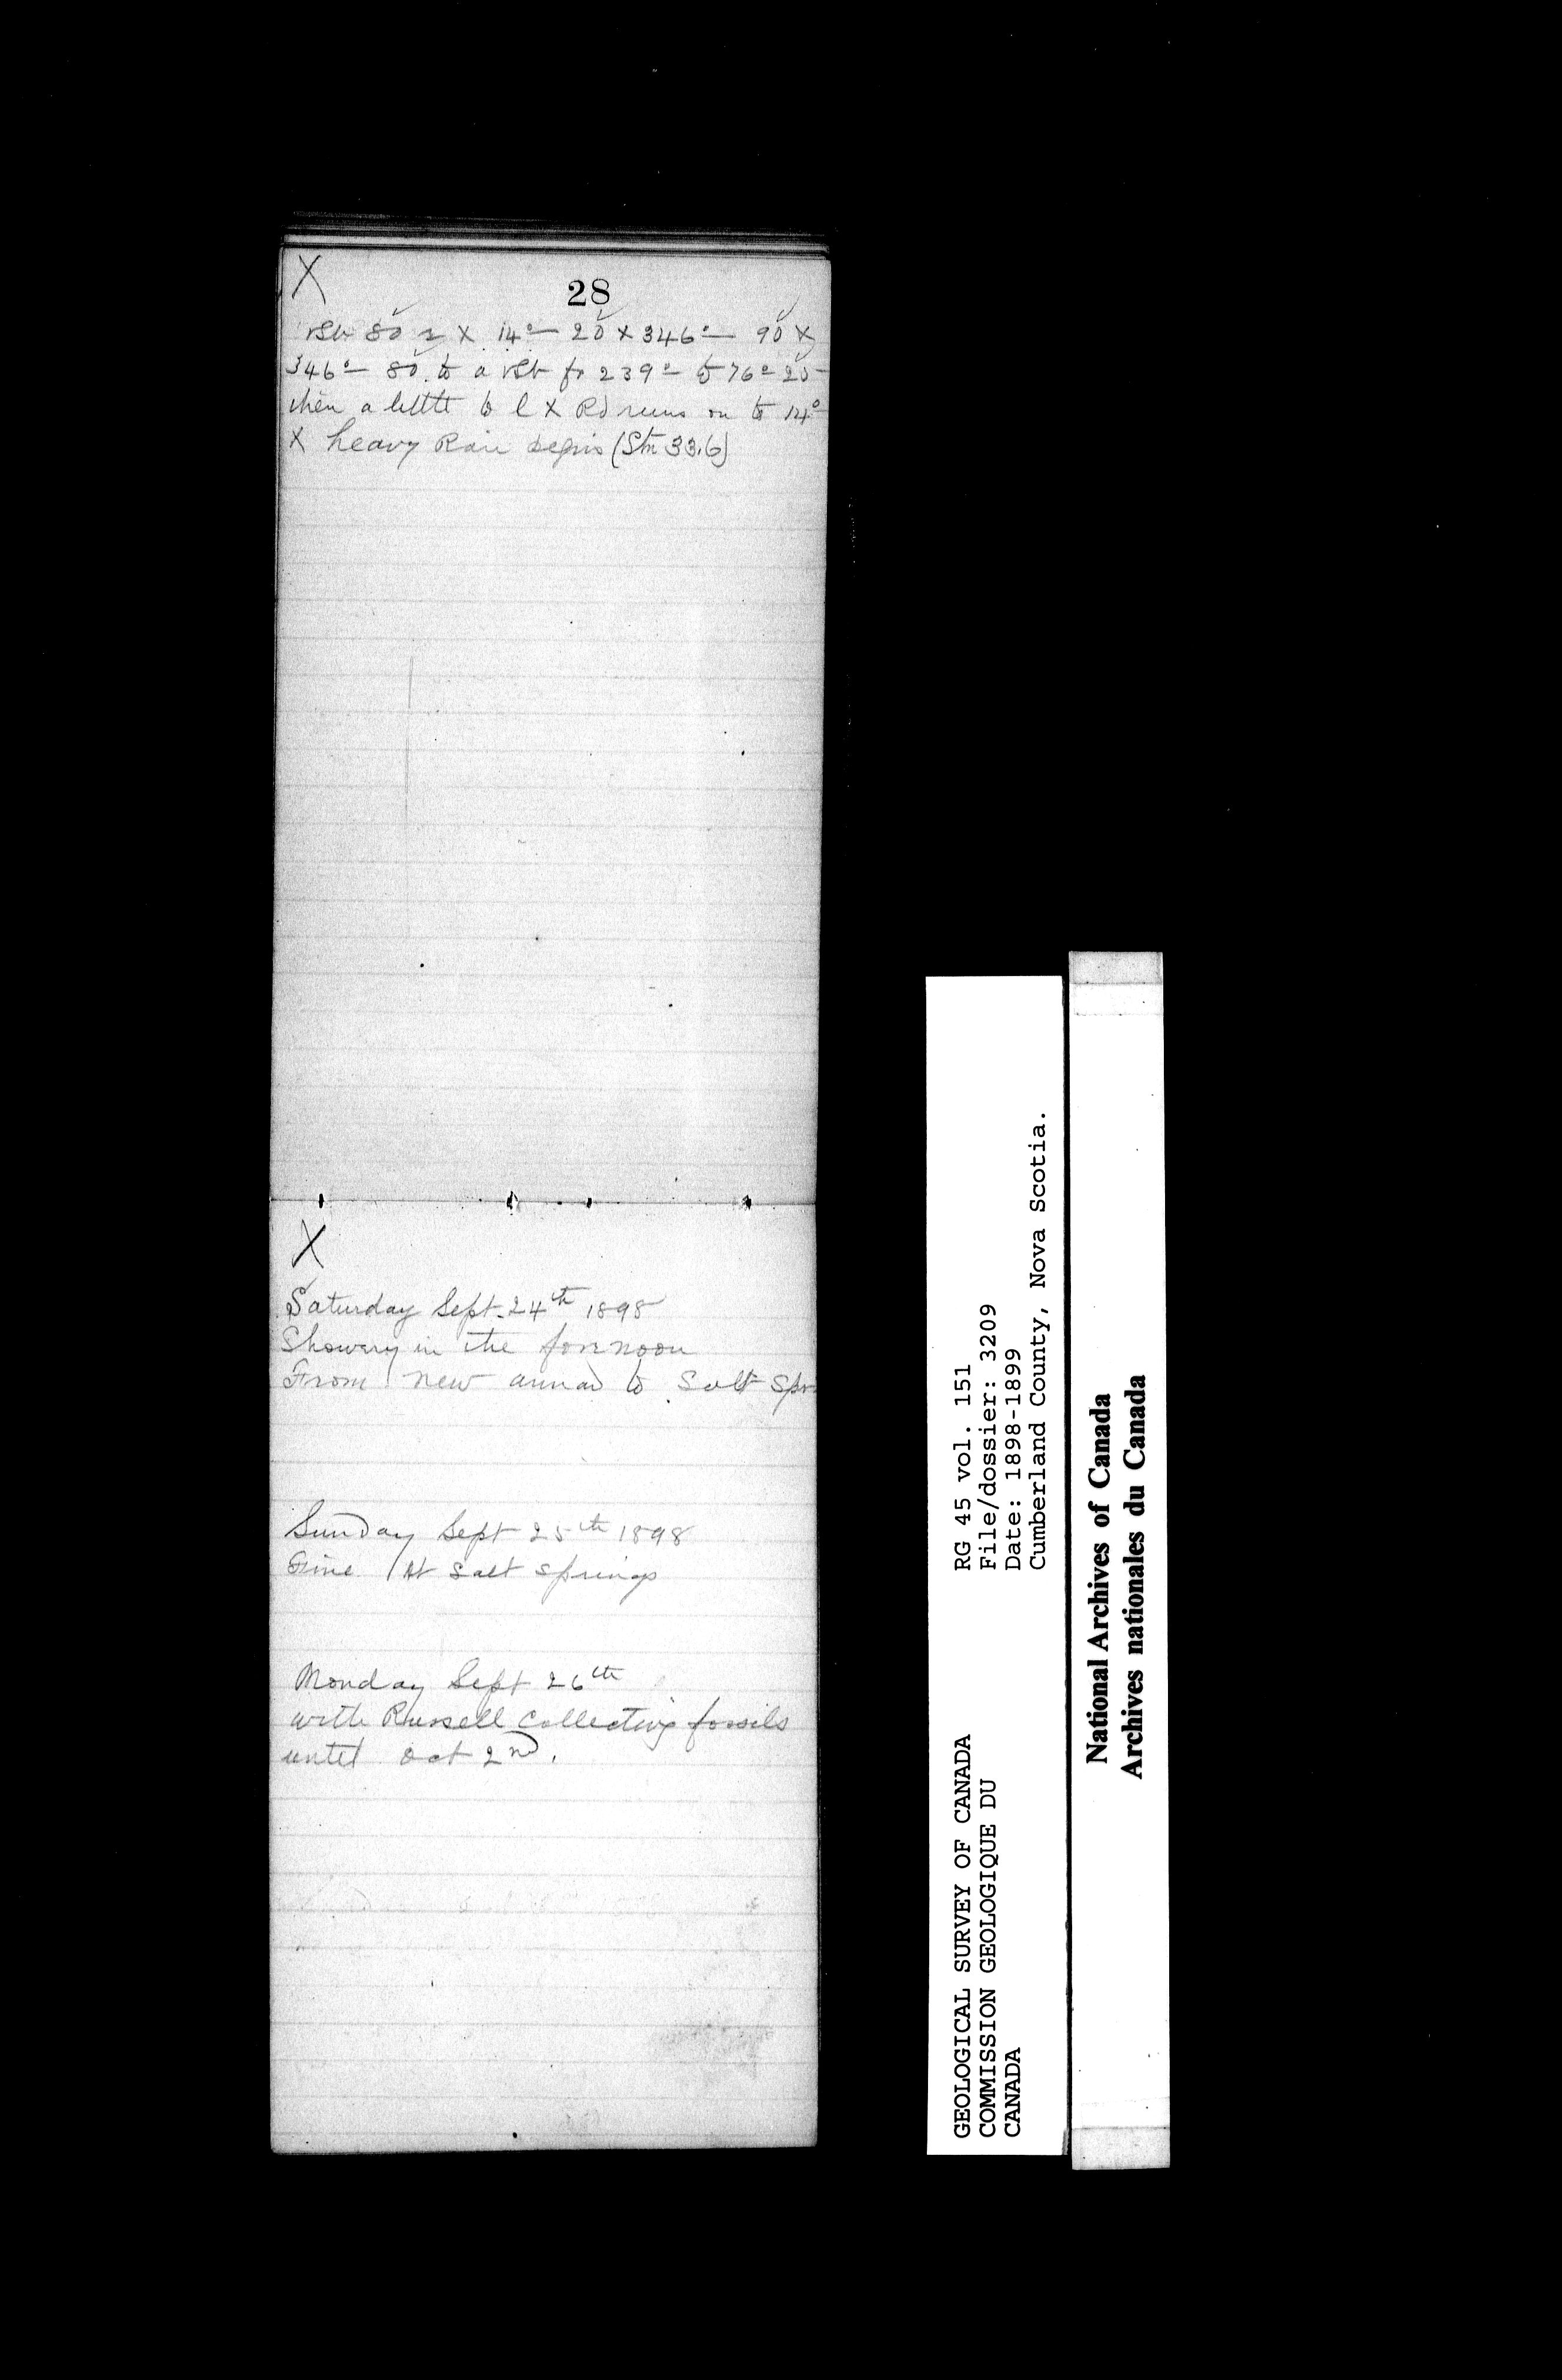 X
28
80 r X 14° — 20 X 346° — 90 X
346° — 80. to a rbt fr 239° to 76° 25
then a little to l X Rd runs on to 14°
X heavy Rain begins (Stn 33.6)
X
Saturday Sept. 24th 1898
Showery in the forenoon
From New annan to Salt Spr
Sunday Sept 25th 1898
Fine At Salt Springs
Monday Sept 26th
with Russell collecting fossils
until Oct 2nd.
GEOLOGICAL SURVEY OF CANADA
COMMISSION GEOLOGIQUE DU
CANADA
RG 45 vol. 151
File/dossier: 3209
Date: 1898-1899
Cumberland County, Nova Scotia.
National Archives of Canada
Archives nationales du Canada